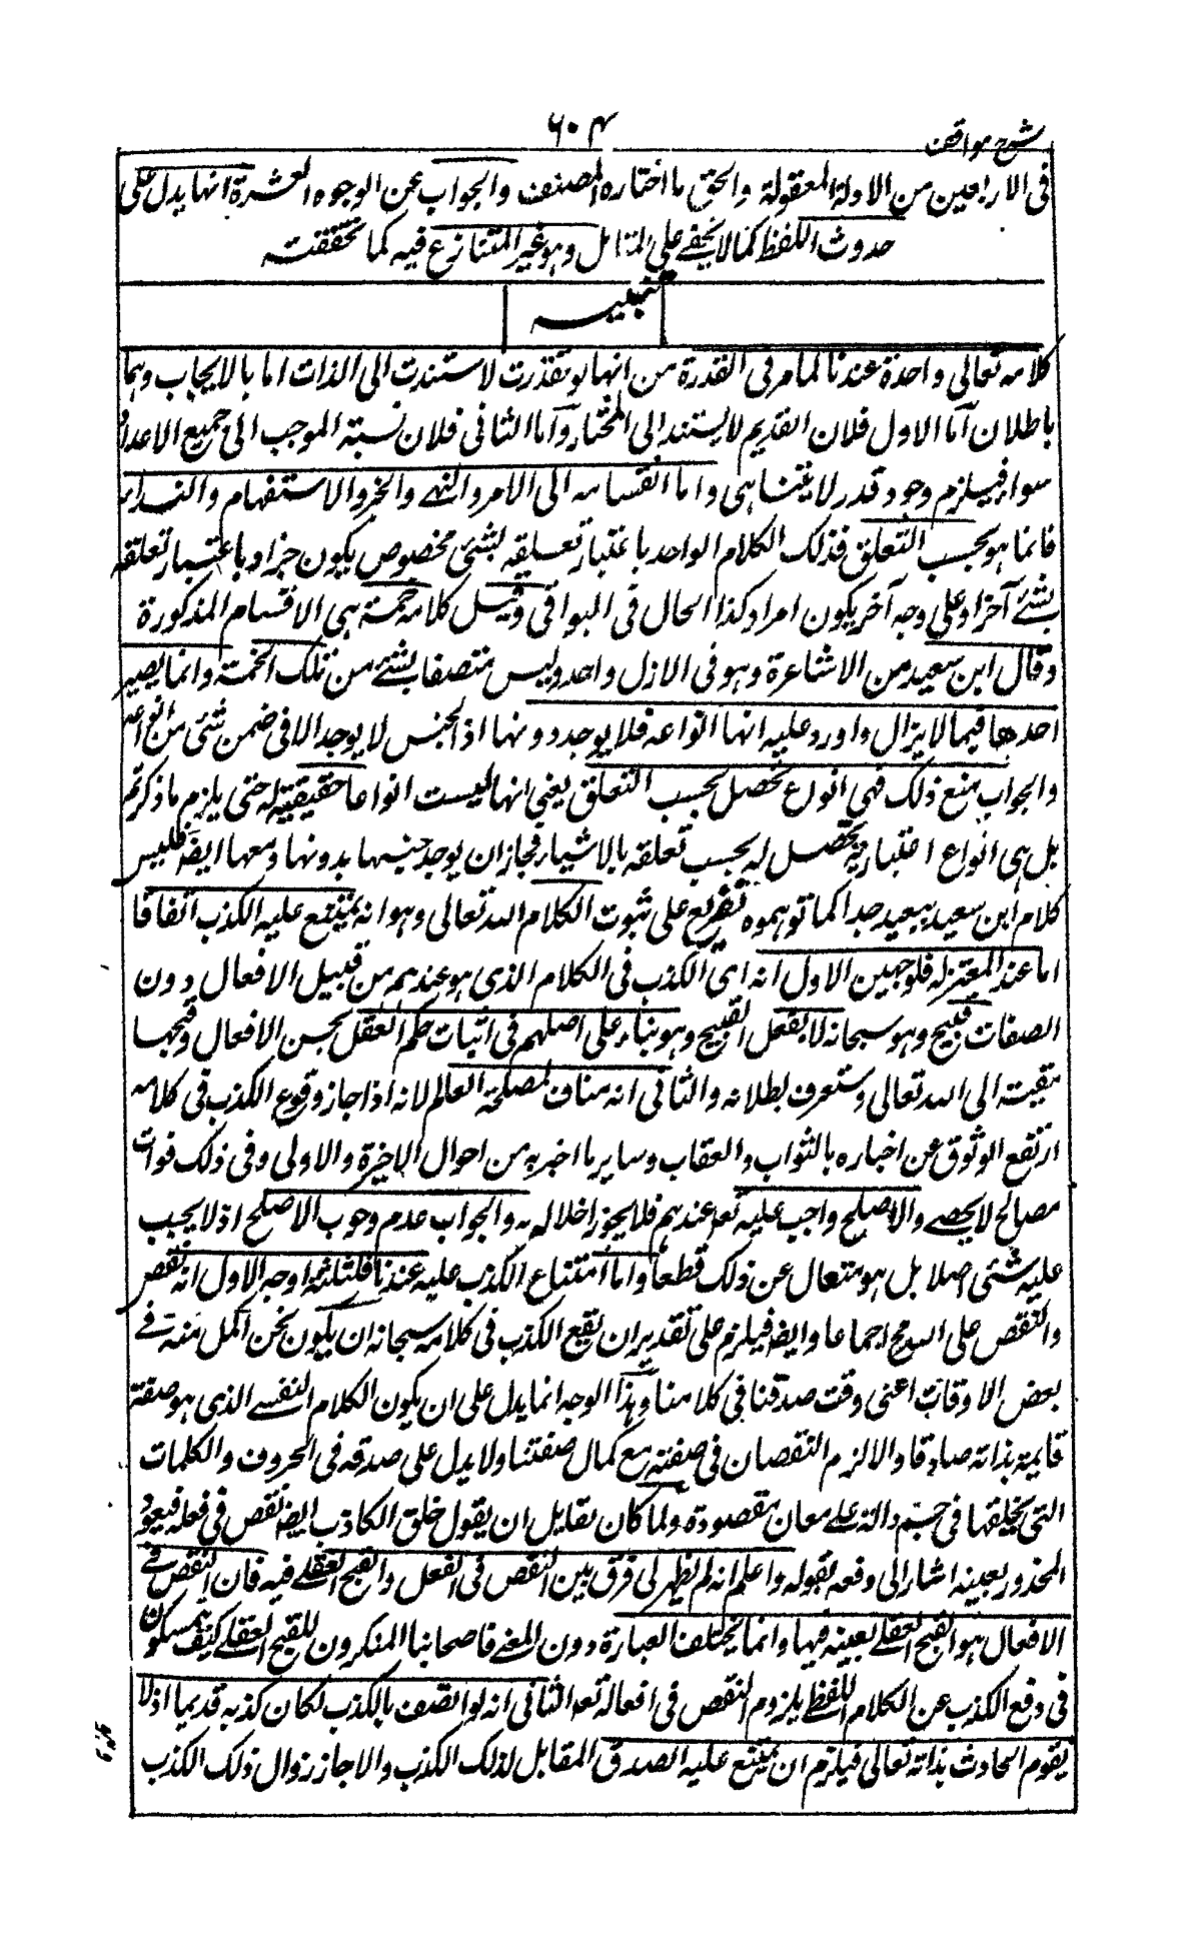 شرح مواقف
٦٠٤
فى الاربعين من الادلة المعقولة والحق ما اختاره المصنف والجواب عن الوجوه العشرة انها يدل على
حدوث اللفظ كما لا يخفى على المتامل وهو غير المتنازع فيه كما تحققته
تنبيه
كلامه تعالى واحدة عندنا لما مر فى القدرة من انها لو تعددت لاستندت الى الذات اما بالايجاب وهما
باطلان اما الاول فلان القديم لا يستند الى المختار واما الثانى فلان نسبة الموجب الى جميع الاعداد
سواء فيلزم وجود قدر لا يتناهى واما انقسامه الى الامر والنهى والخبر والاستفهام والنداء
فانما هو بحسب التعلق فذلك الكلام الواحد باعتبار تعلقه بشئ مخصوص يكون خبرا وباعتبار تعلقه
بشئ آخر او على وجه آخر يكون امرا وكذا الحال فى البواقى وقيل كلامه خمسة هى الاقسام المذكورة
وقال ابن سعيد من الاشاعرة وهو فى الازل واحد وليس متصفا بشئ من تلك الخمسة وانما يصير
احدها فيما لا يزال واورد عليه انها انواعه فلا يوجد دونها اذ الجنس لا يوجد الا فى ضمن شئ من انواعه
والجواب منع ذلك فهى انواع تحصل بحسب التعلق يعنى انها ليست انواعا حقيقية له حتى يلزم ما ذكرتم
بل هى انواع اعتبارية تحصل له بحسب تعلقه بالاشياء فجاز ان يوجد جنسها بدونها ومعها ايضا فليس
كلام ابن سعيد ببعيد جدا كما توهموه تفريع على ثبوت الكلام لله تعالى وهو انه يمتنع عليه الكذب اتفاقا
اما عند المعتزلة فلوجهين الاول انه اى الكذب فى الكلام الذى هو عندهم من قبيل الافعال دون
الصفات قبيح وهو سبحانه لا يفعل القبيح وهو بناء على اصلهم فى اثبات حكم العقل بحسن الافعال وقبحها
مقيسة الى الله تعالى وستعرف بطلانه والثانى انه مناف لمصلحة العالم لانه اذا جاز وقوع الكذب فى كلامه
ارتفع الوثوق عن اخباره بالثواب والعقاب وساير ما اخبر به من احوال الاخرة والاولى وفى ذلك فوات
مصالح لا يحصى والاصلح واجب عليه تعه عندهم فلا يجوز اخلاله به والجواب عدم وجوب الاصلح اذ لا يجب
عليه شئى اصلا بل هو متعال عن ذلك قطعا واما امتناع الكذب عليه عندنا فلثلثة اوجه الاول انه نقص
والنقص على الله مح اجماعا وايضا فيلزم على تقدير ان يقع الكذب فى كلامه سبحانه ان يكون نحن اكمل منه فى
بعض الاوقات اعنى وقت صدقنا فى كلامنا وهذا الوجه انما يدل على ان يكون الكلام النفسى الذى هو صفة
قايمة بذاته صادقا والا لزم النقصان فى صفته مع كمال صفتنا ولا يدل على صدقه فى الحروف والكلمات
التى يخلقها فى جسم دالة على معان مقصودة ولما كان لقايل ان يقول خلق الكاذب ايضا نقص فى فعله فيعود
المحذور بعينه اشار الى دفعه بقوله واعلم انه لم يظهر لى فرق بين النقص فى الفعل والقبح العقلى فيه فان النقص فى
الافعال هو القبح العقلى بعينه فيها وانما يختلف العبارة دون المعنى فاصحابنا المنكرون للقبح العقلى كيف يتمسكون
فى دفع الكذب عن الكلام اللفظى بلزوم النقص فى افعاله تعه الثانى انه لو اتصف بالكذب لكان كذبه قديما اذ لا
يقوم الحادث بذاته تعالى فيلزم ان يمتنع عليه الصدق المقابل لذلك الكذب والا جاز زوال ذلك الكذب